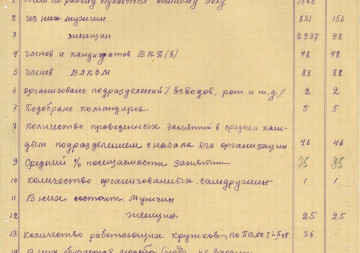 Всего по району обучается военному делу 3768
2 из них мужчин 831 156
3 женщин 2937 98
4 членов и кандидатов ВКП(б) 48 48
5 членов ВЛКСМ 88 88
6 организовано подразделений/взводов, рот и т.д./ 2 2
7 Подобрано командиров 5 5
8 Количество проведенных занятий в среднем каж-
дым подразделением с начала его организации 46 46
9 Средний % посещаемости занятий 75 85
10 количество организованных самодружин 1 1
11 В них состоит: Мужчин
12 Женщин 25 25
13 Количество работающих кружков, по ПВХО Г и ПСО 36
14 В них обучается